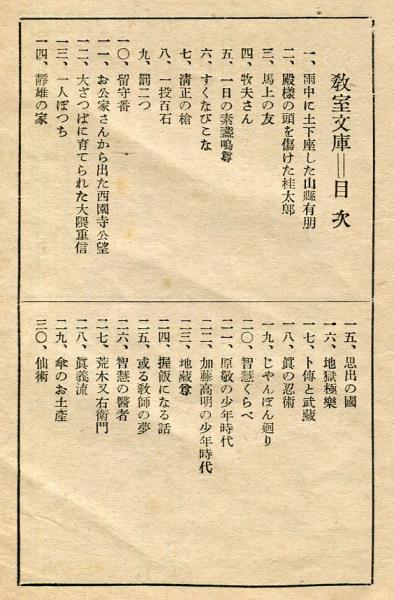 教室文庫＝目次
一、雨中に土下座した山縣有朋
二、殿様の頭を傷けた桂太郎
三、馬上の友
四、牧夫さん
五、一日の素盞嗚尊
六、すくなびこな
七、清正の槍
八、一投百石
九、罰二つ
一〇、留守番
一一、お公家さんから出た西園寺公望
一二、大ざつぱに育てられた大隈重信
一三、一人ぼつち
一四、靜雄の家
一五、思出の國
一六、地獄極樂
一七、卜傳と武藏
一八、眞の忍術
一九、じやんぽん廻り
二〇、智慧くらべ
二一、原敬の少年時代
二二、加藤高明の少年時代
二三、地藏尊
二四、握飯になる話
二五、或る教師の夢
二六、智慧の醫者
二七、荒木又右衛門
二八、眞義流
二九、傘のお土産
三〇、仙術